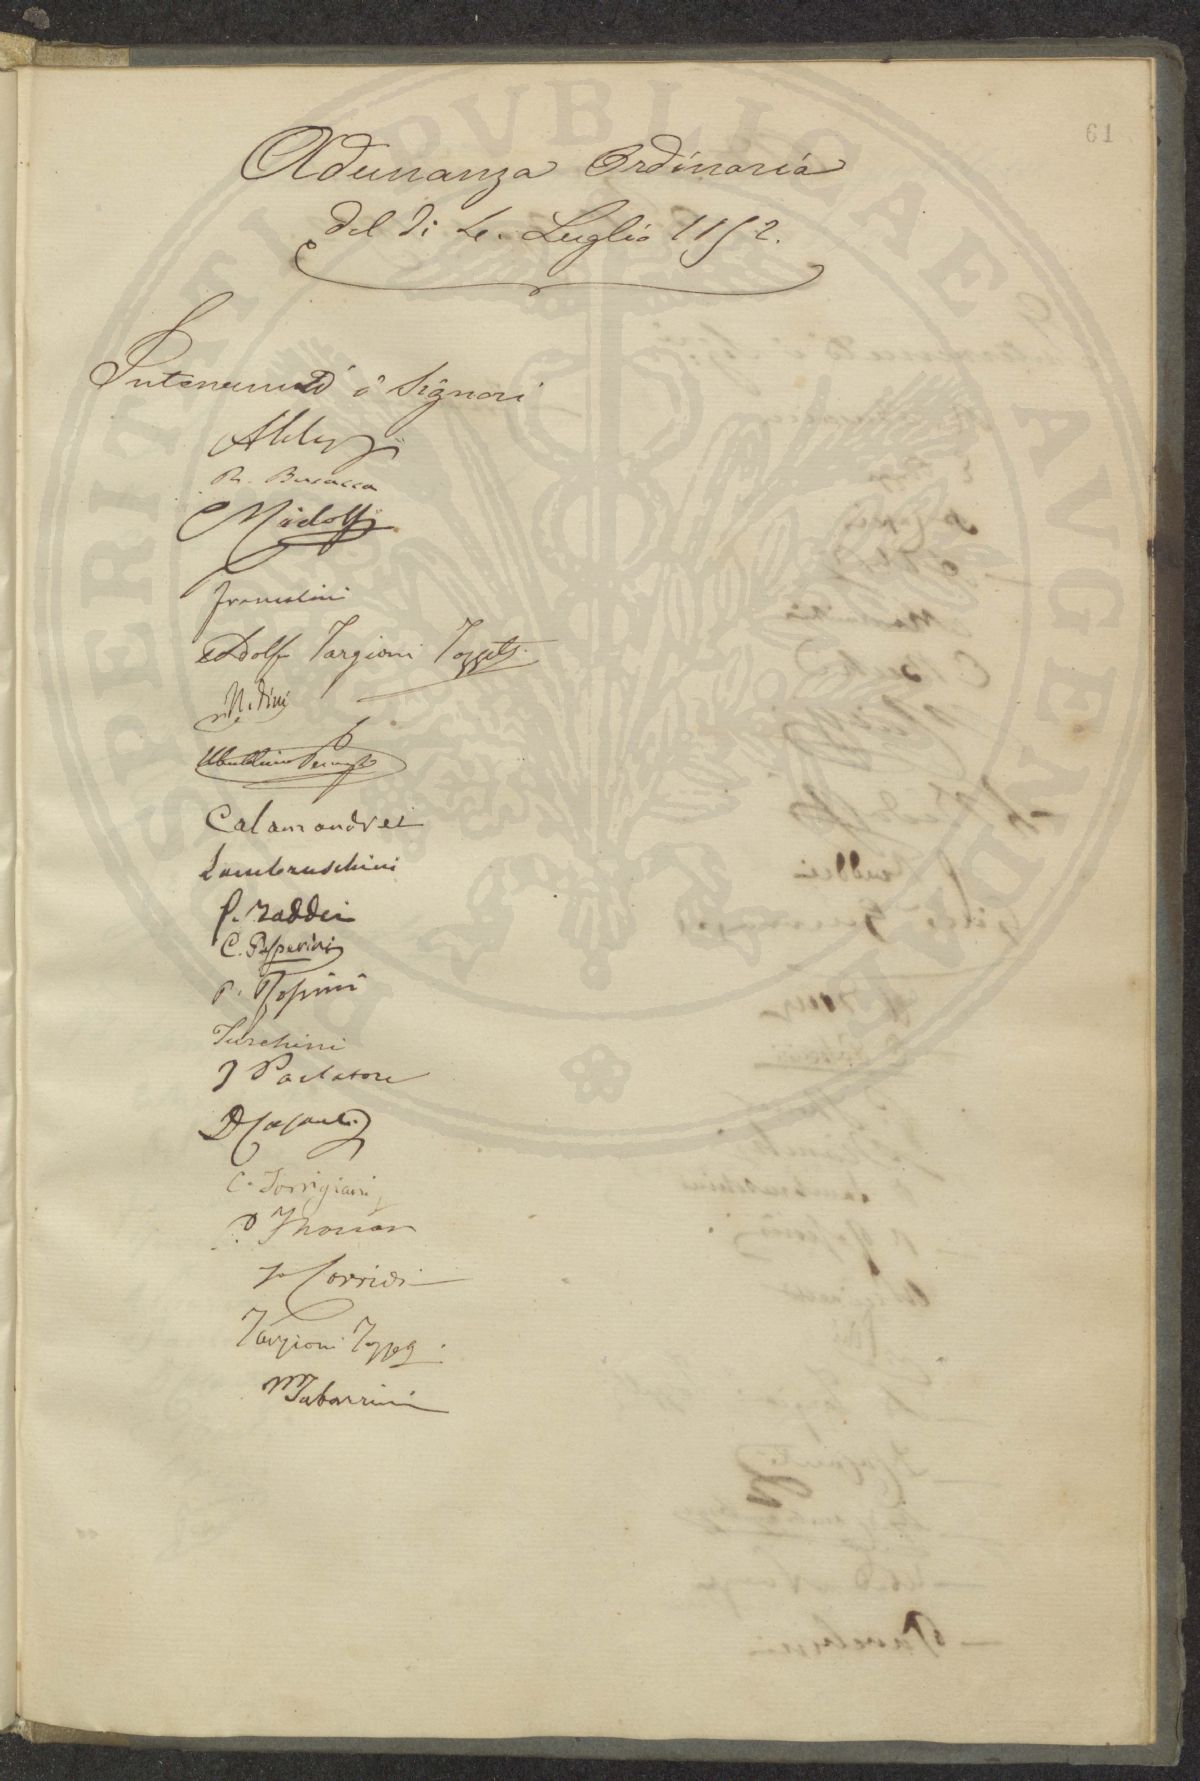 61
Adunanza Ordinaria
del dì 4. Luglio 1852.
Intervennero i Signori
R. Busacca
Ridolfi
Franceschini
Adolfo Targioni Tozzetti
Ubaldino Peruzzi
Calamandrei
Lambruschini
P. Taddei
C. Gasperini
P. Rossini
Turchini
F Parlatore
D Casanti
C. Torrigiani
D Thouar
F Corridi
Targioni Tozzetti
M Tabarrini
PERITI PVBLICAE AVGENDAE PROSPERITATI